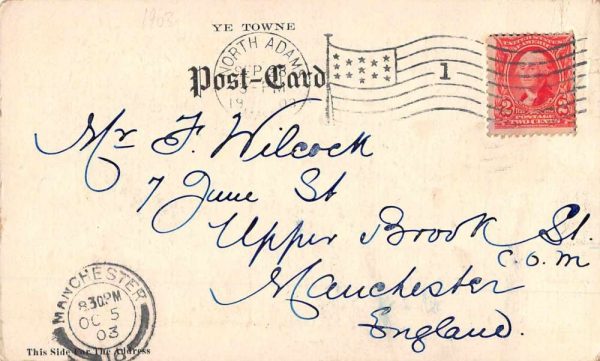 1903
YE TOWNE
NORTH ADAMS
SEP
Post-Card
1
POSTAGE
2 TWO CENTS 2
Mr F. Wilcock
7 June St
Upper Brook St.
C. O. M
Manchester
England.
MANCHESTER
8 30PM
OC 5
03
This Side For The Address